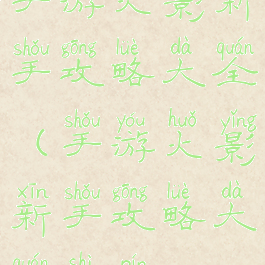 手游火影新
shǒu gōng lüè dà quán
手攻略大全
shǒu yóu huǒ yǐng
（手游火影
xīn shǒu gōng lüè dà
新手攻略大